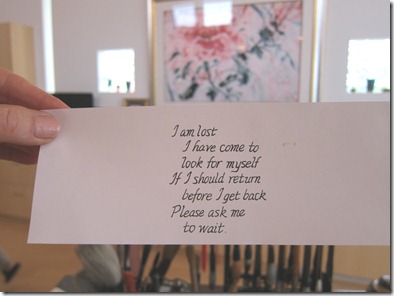 I am lost
I have come to
look for myself
If I should return
before I get back
Please ask me
to wait.